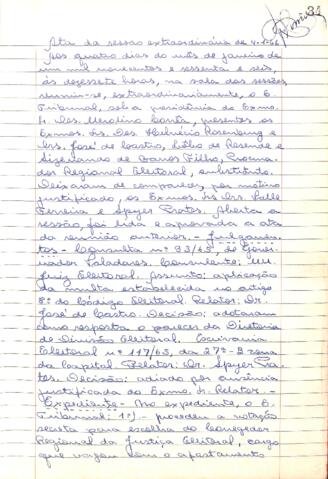 31
Ata da sessão extraordinária de 4-1-66
Aos quatro dias do mês de janeiro de
um mil novecentos e sessenta e seis,
às dezessete horas, na sala das sessões,
reuniu-se, extraordinariamente, o E.
Tribunal, sob a presidência do Exmo.
Sr. Des. Merolino Corrêa, presentes os
Exmos. Srs. Des. Helvécio Rosenburg e
Drs. José de Castro, Célho de Resende e
Sizenando de Barros Filho, Procura-
dor Regional Eleitoral, substituto.
Deixaram de comparecer, por motivo
justificado, os Exmos. Srs. Drs. Valle
Ferreira e Speyer Prates. Aberta a
sessão, foi lida e aprovada a ata
da reunião anterior. - Julgamen-
tos - Consulta nº 33/65, de Gover-
nador Valadares. Consulente: MM.
Juiz Eleitoral. Assunto: aplicação
da multa estabelecida no artigo
8º do Código Eleitoral. Relator: Dr.
José de Castro. Decisão: adotaram
como resposta o parecer da Diretoria
de Divisão Eleitoral. Escrivania
Eleitoral nº 117/65, da 27ª zona
da Capital. Relator: Dr. Speyer Pra-
tes. Decisão: adiado por ausência
justificada do Exmo. Sr. Relator. -
Expediente - No expediente, o E.
Tribunal: 1º) - procedeu a votação
secreta para escolha do Corregedor
Regional da Justiça Eleitoral, cargo
que vagou com o afastamento